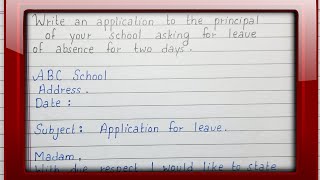 Write an application to the principal
of your school asking for leave
of absence for two days.
ABC School
Address.
Date :
Subject: Application for leave.
Madam,
With due respect I would like to state